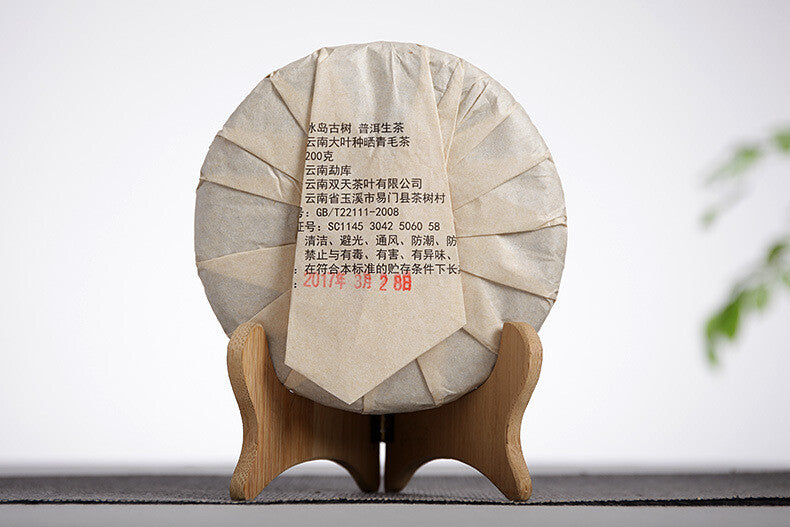 冰岛古树 普洱生茶
云南大叶种晒青毛茶
200克
云南勐库
云南双天茶叶有限公司
云南省玉溪市易门县茶树村
号: GB/T22111-2008
证号: SC1145 3042 5060 58
清洁、避光、通风、防潮、防
禁止与有毒、有害、有异味、
: 在符合本标准的贮存条件下长
: 2017年 3月 2 8日